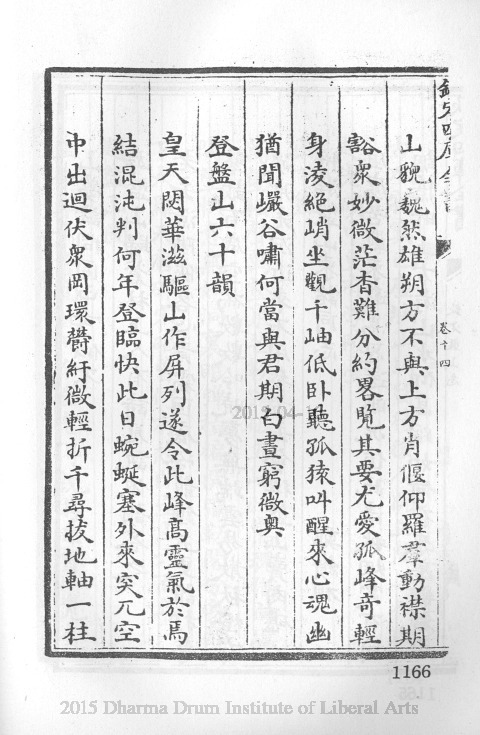 欽定四庫全書
卷十四
山貌巍然雄朔方不與上方肖偃仰羅羣動襟期
豁衆妙微茫杳難分約畧覧其要尤愛孤峰奇輕
身淩絕峭坐觀千岫低卧聽孤猿叫醒來心魂幽
猶聞巗谷嘯何當與君期白晝窮微奥
登盤山六十韻
皇天閟華滋驅山作屏列遂令此峰髙靈氣於焉
結混沌判何年登臨快此日蜿蜒塞外來突兀空
中出迴伏衆岡環鬱紆微輕折千尋拔地軸一柱
1166
2015 Dharma Drum Institute of Liberal Arts